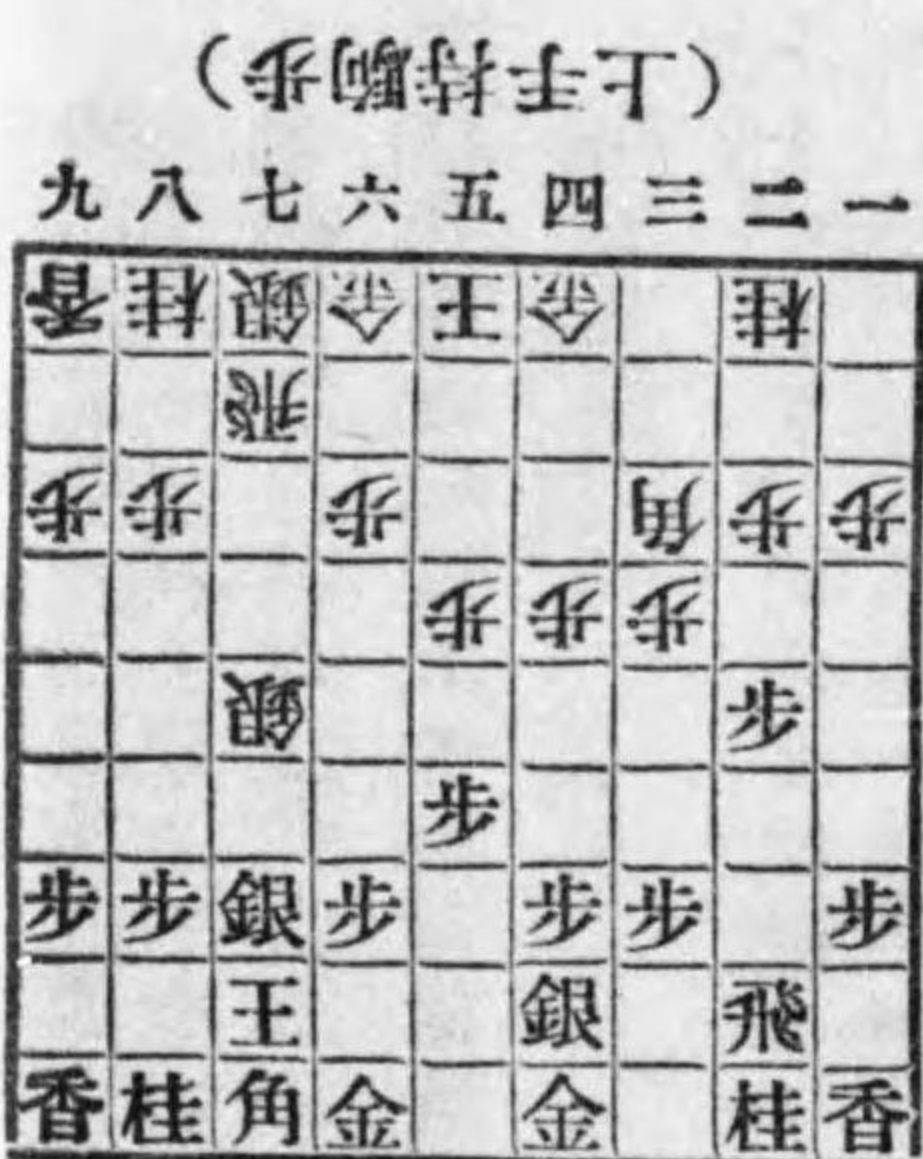 （上手持駒歩）
九八七六五四三二一
香桂銀金王金桂
飛
歩歩歩角歩歩
歩歩歩
銀歩
歩
歩歩銀歩歩歩歩
王銀飛
香桂角金金桂香